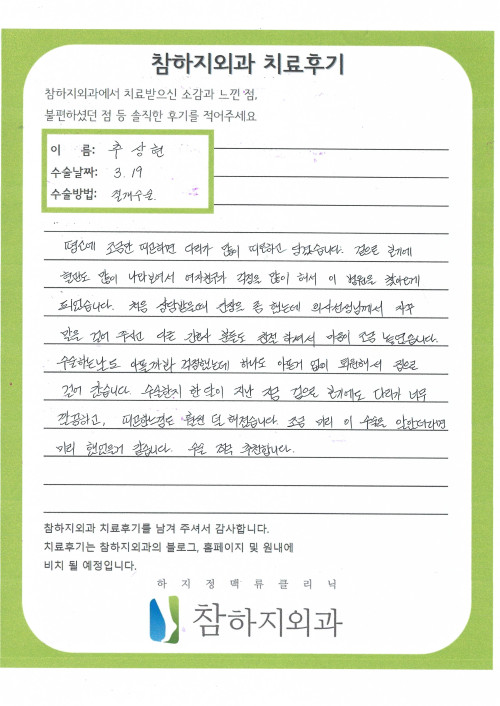 참하지외과 치료후기
참하지외과에서 치료받으신 소감과 느낀 점,
불편하셨던 점 등 솔직한 후기를 적어주세요
이 름: 추상현
수술날짜: 3. 19
수술방법: 절개수술
평소에 조금만 피곤하면 다리가 많이 피로하고 당겼습니다. 겉으로 보기에
혈관도 많이 나타보여서 여자친구가 걱정을 많이 해서 이 병원을 찾아오게
되었습니다. 처음 상담받으며 긴장을 좀 했는데 의사선생님께서 자꾸
말을 걸어 주시고 다른 간호사 분들도 친절 하셔서 마음이 조금 놓였습니다.
수술하는날도 아플까봐 걱정했는데 하나도 아픈거 없이 회복해서 집으로
걸어 갔습니다. 수술한지 한달이 지난 지금 겉으로 보기에도 다리가 너무
깔끔하고, 피곤한느낌도 훨씬 덜 해졌습니다. 조금 미리 이 수술을 알았더라면
미리 했었을거 같습니다. 수술 적극 추천합니다.
참하지외과 치료후기를 남겨 주셔서 감사합니다.
치료후기는 참하지외과의 블로그, 홈페이지 및 원내에
비치 될 예정입니다.
하지정맥류클리닉
참하지외과